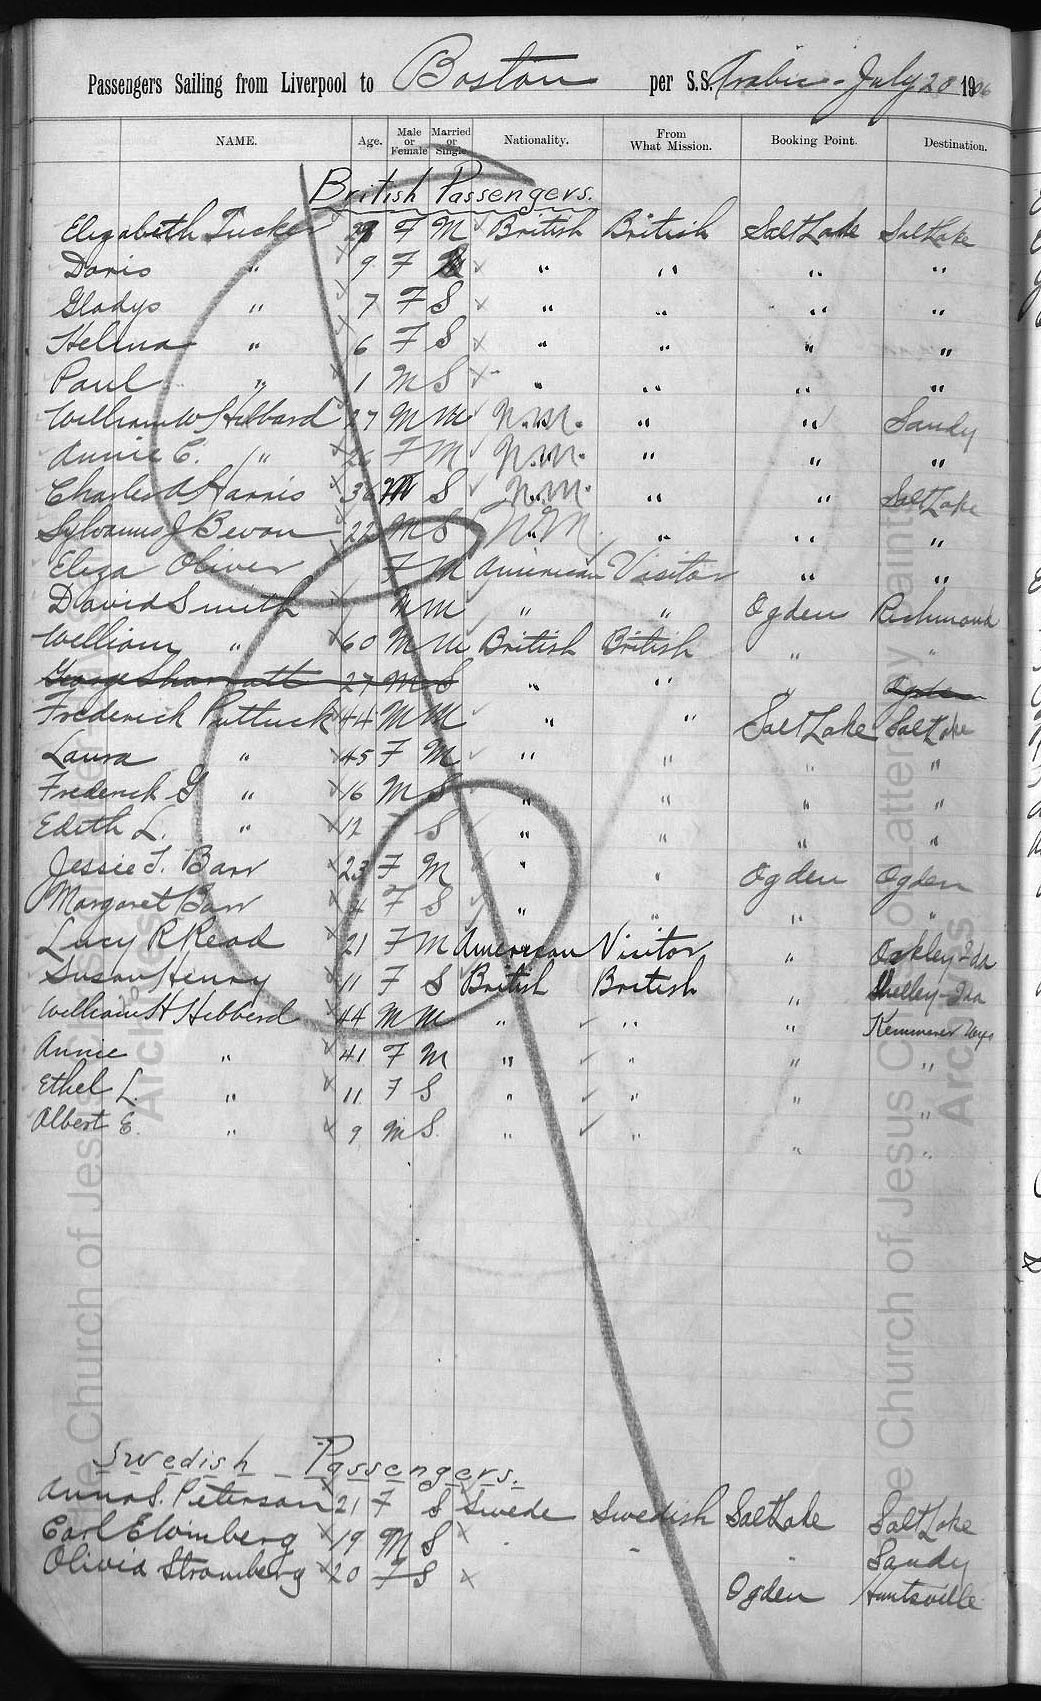 Passengers Sailing from Liverpool to Boston per S.S. Arabic - July 20 1906
NAME. Age. Male or Female Married or Single Nationality. From What Mission. Booking Point. Destination.
British Passengers.
Elizabeth Tucker F M British British Salt Lake Salt Lake
Doris " 9 F " " " "
Gladys " 7 F S " " " "
Helena " 6 F S " " " "
Paul " 1 M S " " " "
William W Hibbard 27 M M N.M. " " Sandy
Annie C. " F M N.M. " " "
Charles A Harris 30 M S N.M. " " Salt Lake
Sylvanus J Bevan 22 M S N.M. " " "
Eliza Oliver F M American Visitor " "
David Smith M M " " Ogden Richmond
William " 60 M M British British " "
George 27 M S " " " Ogden
Frederick Puttuck 44 M M " " Salt Lake Salt Lake
Laura " 45 F M " " " "
Frederick G " 16 M S " " " "
Edith L. " 12 F S " " " "
Jessie T. Barr 23 F M " " Ogden Ogden
Margaret Barr 4 F S " " " "
Lucy R Read 21 F M American Visitor " Oakley Ida
Susan Henry 11 F S British British " Shelley Ida
William H Hibberd 44 M M " " " Kemmerer Wyo
Annie " 41 F M " " " "
Ethel L. " 11 F S " " " "
Albert E. " 9 M S " " " "
Swedish Passengers.
Anna S. Peterson 21 F S Swede Swedish Salt Lake Salt Lake
Carl Elvinberg 19 M S " " " Sandy
Olivia Stromberg 20 F S Ogden Huntsville
The Church of Jesus Christ of Latter-day Saints
Archives
The Church of Jesus Christ of Latter-day Saints
Archives